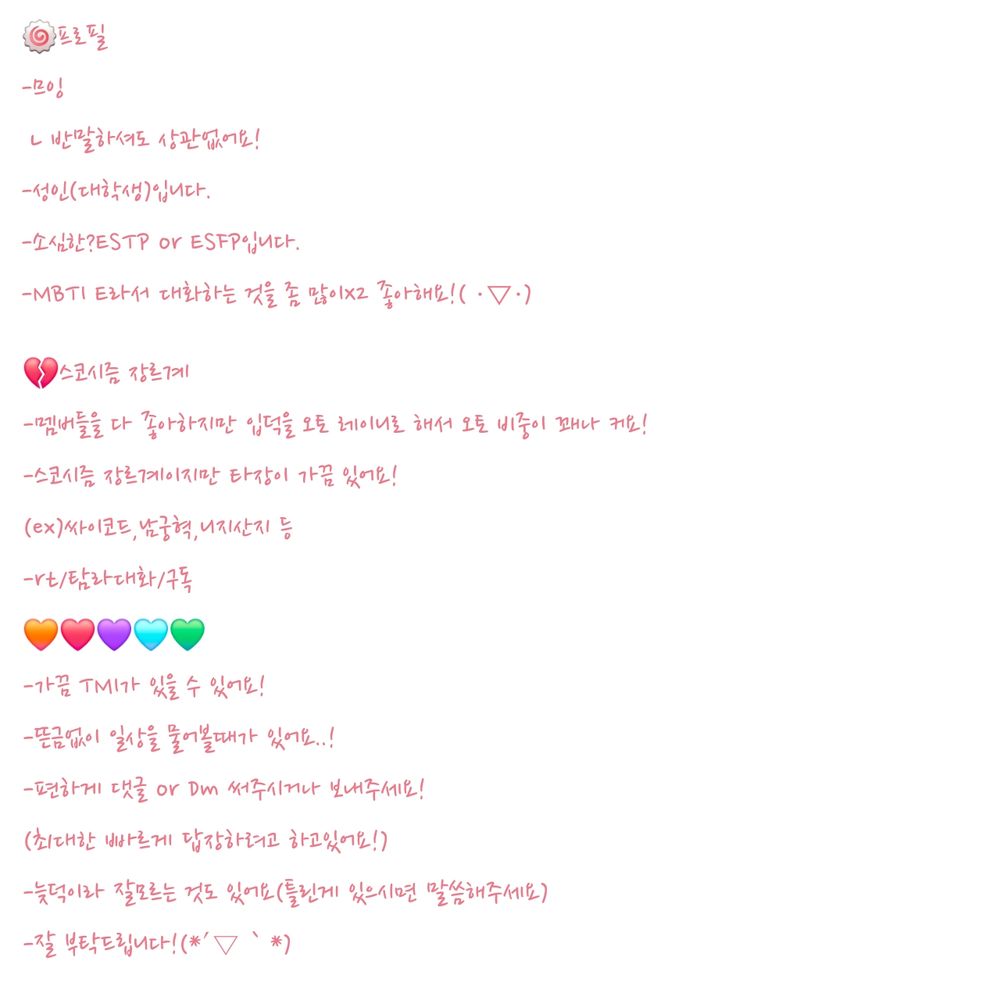 🍥프로필
-므잉
ㄴ 반말하셔도 상관없어요!
-성인(대학생)입니다.
-소심한?ESTP or ESFP입니다.
-MBTI E라서 대화하는 것을 좀 많이x2 좋아해요!( •▽•)
💔스코시즘 장르계
-멤버들을 다 좋아하지만 입덕을 오토 레이니로 해서 오토 비중이 꽤나 커요!
-스코시즘 장르계이지만 타장이 가끔 있어요!
(ex)싸이코드,남궁혁,니지산지 등
-rt/탐라대화/구독
🧡❤️💜🩵💚
-가끔 TMI가 있을 수 있어요!
-뜬금없이 일상을 물어볼때가 있어요..!
-편하게 댓글 or Dm 써주시거나 보내주세요!
(최대한 빠르게 답장하려고 하고있어요!)
-늦덕이라 잘모르는 것도 있어요(틀린게 있으시면 말씀해주세요)
-잘 부탁드립니다!(*´▽｀*)